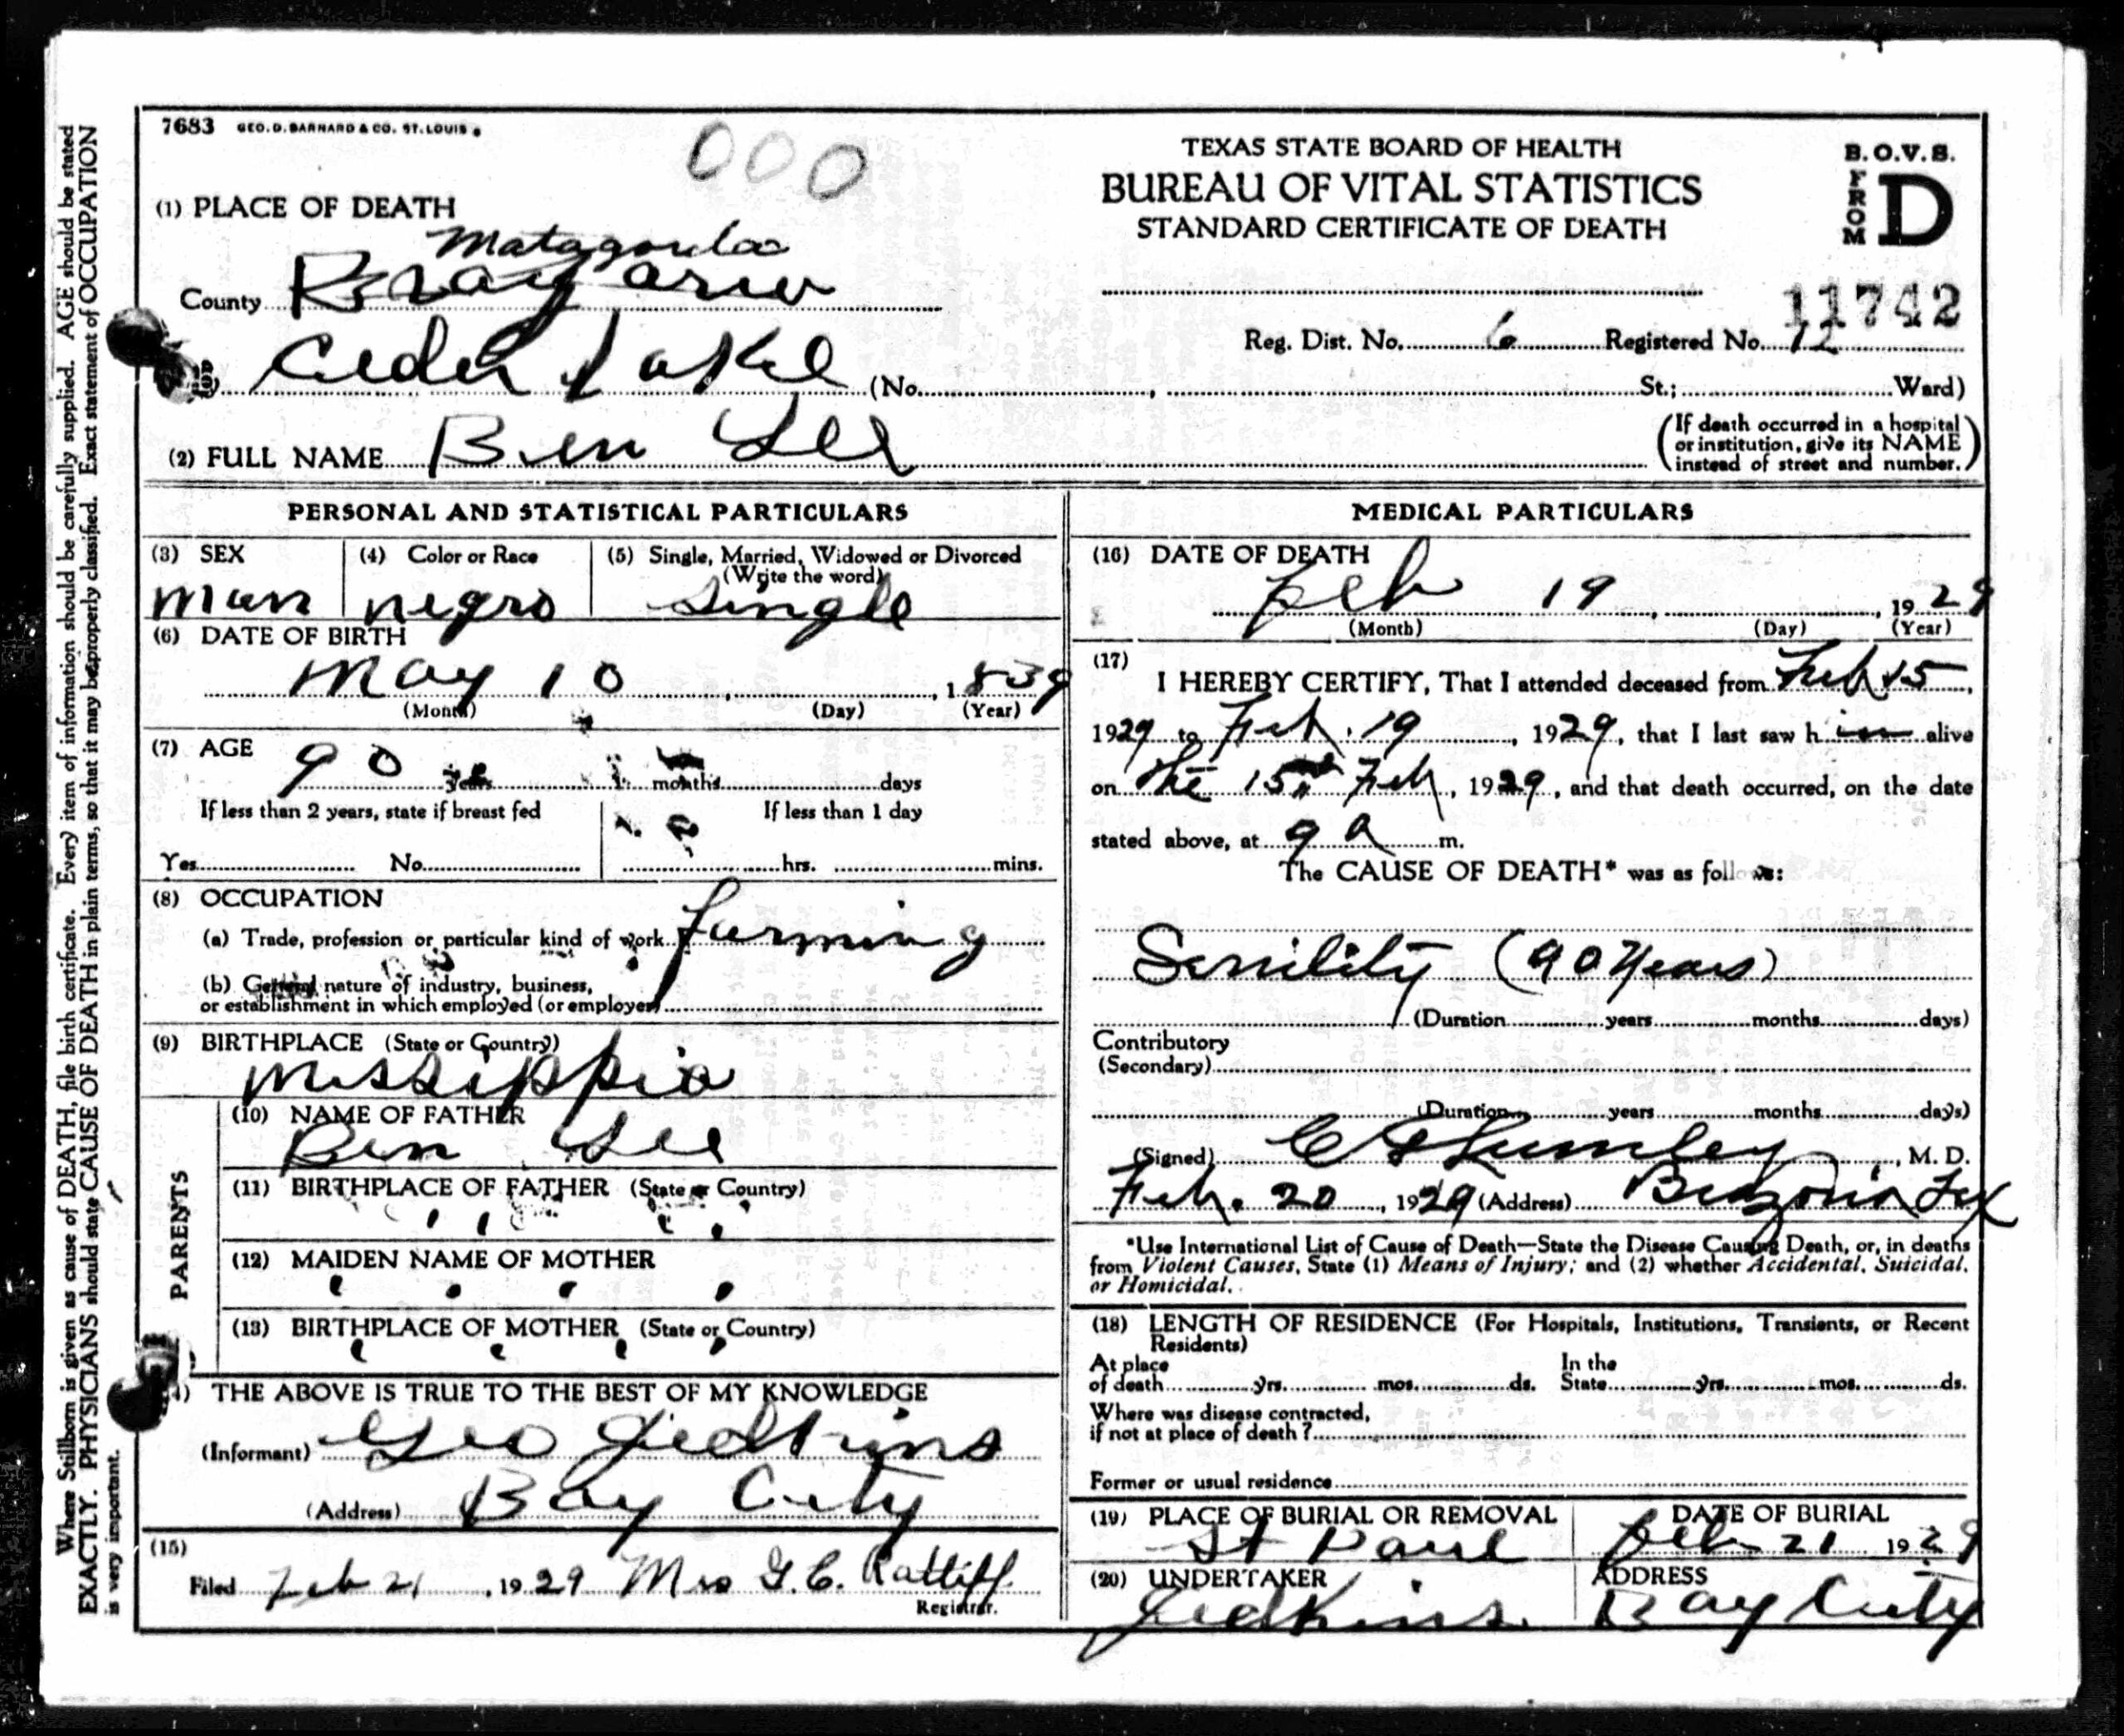 7683 GEO. D. BARNARD & CO. ST. LOUIS
000
TEXAS STATE BOARD OF HEALTH
BUREAU OF VITAL STATISTICS
STANDARD CERTIFICATE OF DEATH
B.O.V.S.
FROM D
11742
(1) PLACE OF DEATH
Matagorda
County Brazoria
Reg. Dist. No. 6 Registered No. 12
Ceder Lake (No. , St.; Ward)
(2) FULL NAME Ben Lee
(If death occurred in a hospital
or institution, give its NAME
instead of street and number.)
PERSONAL AND STATISTICAL PARTICULARS
(3) SEX (4) Color or Race (5) Single, Married, Widowed or Divorced
(Write the word)
man negro single
(6) DATE OF BIRTH
May 10 , 1839
(Month) (Day) (Year)
(7) AGE
90 years months days
If less than 2 years, state if breast fed If less than 1 day
Yes No hrs. mins.
(8) OCCUPATION
(a) Trade, profession or particular kind of work farming
(b) General nature of industry, business,
or establishment in which employed (or employer)
(9) BIRTHPLACE (State or Country)
Missippia
PARENTS
(10) NAME OF FATHER
Ben Lee
(11) BIRTHPLACE OF FATHER (State or Country)
(12) MAIDEN NAME OF MOTHER
(13) BIRTHPLACE OF MOTHER (State or Country)
THE ABOVE IS TRUE TO THE BEST OF MY KNOWLEDGE
(Informant) Geo Jedkins
(Address) Bay City
(15)
Filed Feb 21 , 1929 Mrs G. C. Ratliff
Registrar.
MEDICAL PARTICULARS
(16) DATE OF DEATH
Feb 19 , 1929
(Month) (Day) (Year)
(17)
I HEREBY CERTIFY, That I attended deceased from Feb 15,
1929 to Feb. 19, 1929, that I last saw him alive
on the 15th Feb, 1929, and that death occurred, on the date
stated above, at 9 a m.
The CAUSE OF DEATH* was as follows:
Senility (90 years)
(Duration years months days)
Contributory
(Secondary)
(Duration years months days)
(Signed) , M. D.
Feb. 20, 1929 (Address) Brazoria Tex
*Use International List of Cause of Death—State the Disease Causing Death, or, in deaths
from Violent Causes, State (1) Means of Injury; and (2) whether Accidental, Suicidal,
or Homicidal.
(18) LENGTH OF RESIDENCE (For Hospitals, Institutions, Transients, or Recent
Residents)
At place In the
of death yrs. mos. ds. State yrs. mos. ds.
Where was disease contracted,
if not at place of death?
Former or usual residence
(19) PLACE OF BURIAL OR REMOVAL DATE OF BURIAL
St Paul Feb 21 1929
(20) UNDERTAKER ADDRESS
Jedkins Bay City
Where Stillborn is given as cause of DEATH, file birth certificate. Every item of information should be carefully supplied. AGE should be stated
EXACTLY. PHYSICIANS should state CAUSE OF DEATH in plain terms, so that it may be properly classified. Exact statement of OCCUPATION
is very important.